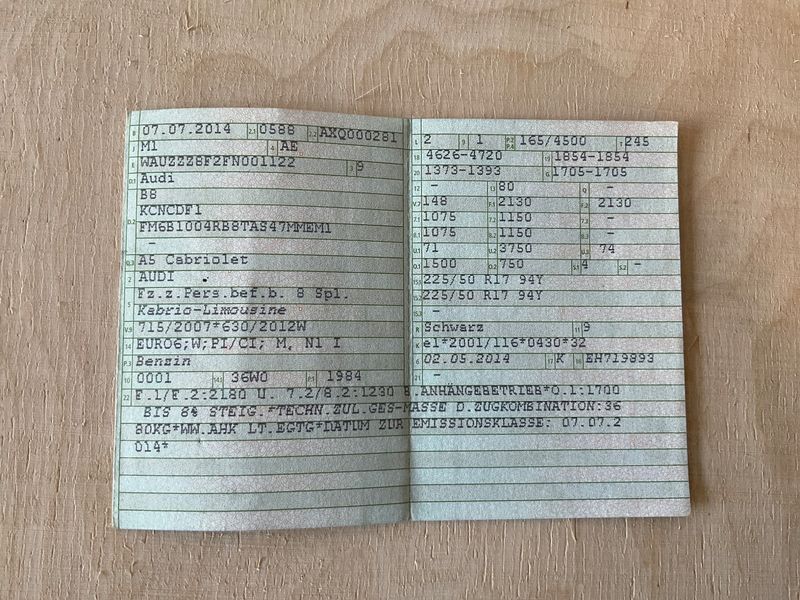 B 07.07.2014 2.1 0588 2.2 AXQ000281
J M1 4 AE
E WAUZZZ8F2FN001122 3 9
D.1 Audi
B8
D.2 KCNCDF1
FM6B1004RB8TAS47MMEM1
–
D.3 A5 Cabriolet
2 AUDI
5 Fz.z.Pers.bef.b. 8 Spl.
Kabrio-Limousine
V.9 715/2007*630/2012W
14 EURO6;W;PI/CI; M, N1 I
P.3 Benzin
10 0001 14.1 36W0 P.1 1984
L 2 9 1 P.2 P.4 165/4500 T 245
18 4626-4720 19 1854-1854
20 1373-1393 G 1705-1705
12 – 13 80 Q –
V.7 148 F.1 2130 F.2 2130
7.1 1075 7.2 1150 7.3 –
8.1 1075 8.2 1150 8.3 –
U.1 71 U.2 3750 U.3 74
O.1 1500 O.2 750 S.1 4 S.2 –
15.1 225/50 R17 94Y
15.2 225/50 R17 94Y
15.3 –
R Schwarz 11 9
K e1*2001/116*0430*32
6 02.05.2014 17 K 16 EH719893
21 –
22 F.1/F.2:2180 U. 7.2/8.2:1230 B.ANHÄNGEBETRIEB*O.1:1700
BIS 8% STEIG.*TECHN.ZUL.GES-MASSE D.ZUGKOMBINATION:36
80KG*WW.AHK LT.EGTG*DATUM ZUR EMISSIONSKLASSE: 07.07.2
014*